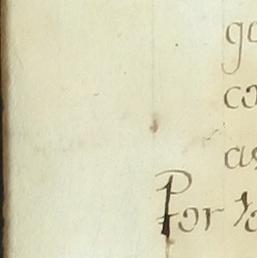 go
co
as
Por